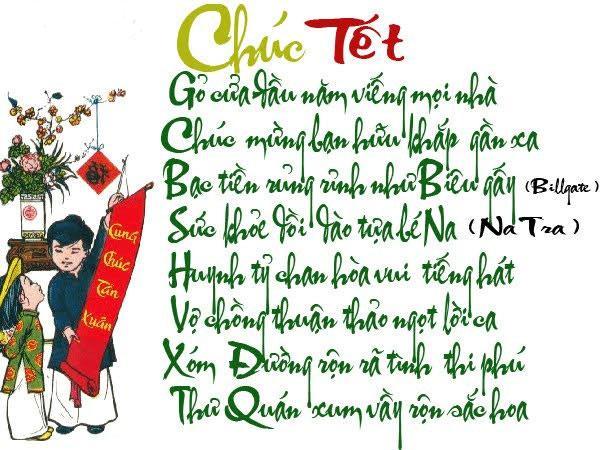 Chúc Tết
Gỏ cửa đầu năm viếng mọi nhà
Chúc mừng bạn hữu khắp gần xa
Bạc tiền rủng rỉnh như Biêu gấy (Billgate)
Sức khỏe dồi dào tựa bé Na (Na Tra)
Huynh tỷ chan hòa vui tiếng hát
Vợ chồng thuận thảo ngọt lời ca
Xóm Đường rộn rã tình thi phú
Thư Quán xum vầy rộn sắc hoa
Cung
Chúc
Tân
Xuân